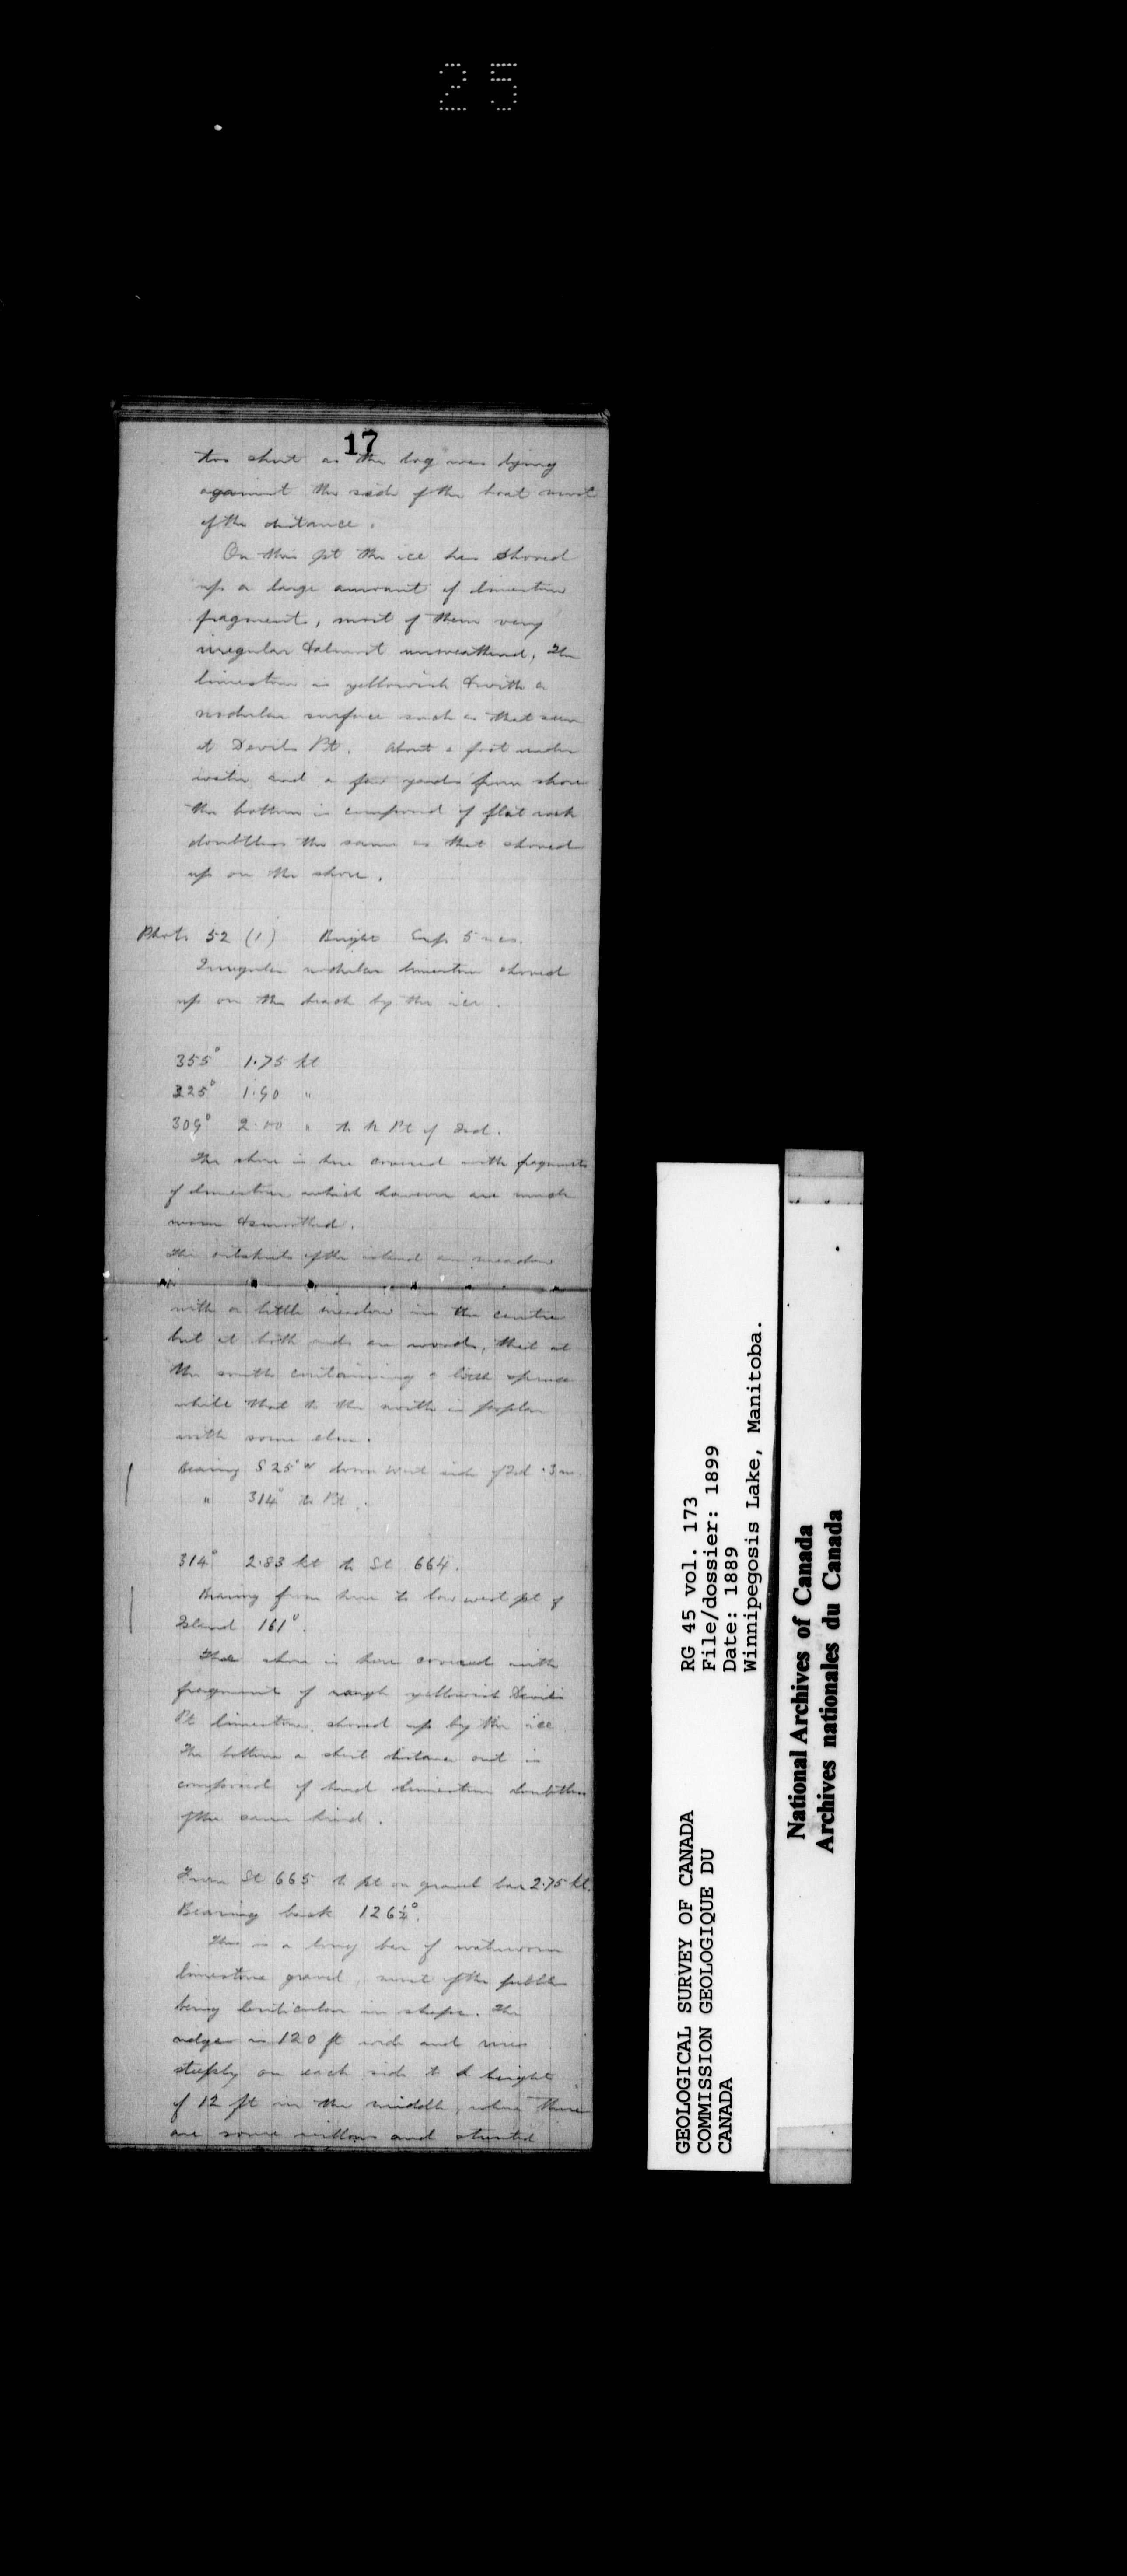 25
17
too short as the log was lying
against the side of the boat most
of the distance.
On this pt the ice has shoved
up a large amount of limestone
fragments, most of them very
irregular & almost unweathered, The
limestone is yellowish & with a
nodular surface such as that seen
at Devils Pt. About a foot under
water and a few yards from shore
the bottom is composed of flat rock
doubtless the same as that shoved
up on the shore.
Photo 52 (1) Bright Exp. 5 secs.
Irregular nodular limestone shoved
up on the beach by the ice.
355° 1.75 kt
325° 1.90 "
309° 2.00 " to N Pt of Isd.
The shore is here covered with fragments
of limestone which however are much
worn & smoothed.
The outskirts of the island are meadow
with a little meadow in the centre
but at both ends are woods, that at
the south containing a little spruce
while that to the north is poplar
with some elm.
Bearing S 25° W down west side of Isd .3 m.
" 314° to Pt.
314° 2.83 kt to St 664.
Bearing from here to low west pt of
Island 161°.
The shore is here covered with
fragments of rough yellowish Devils
Pt limestone, shoved up by the ice
The bottom a short distance out is
composed of hard limestone doubtless
of the same kind.
From St 665 to pt on gravel bar 2.75 kt.
Bearing back 126½°.
This is a long bar of waterworn
limestone gravel, most of the pebbles
being lenticular in shape. The
ridge is 120 ft wide and rises
steeply on each side to a height
of 12 ft in the middle, where there
are some willows and stunted
GEOLOGICAL SURVEY OF CANADA
COMMISSION GEOLOGIQUE DU
CANADA
RG 45 vol. 173
File/dossier: 1899
Date: 1889
Winnipegosis Lake, Manitoba.
National Archives of Canada
Archives nationales du Canada